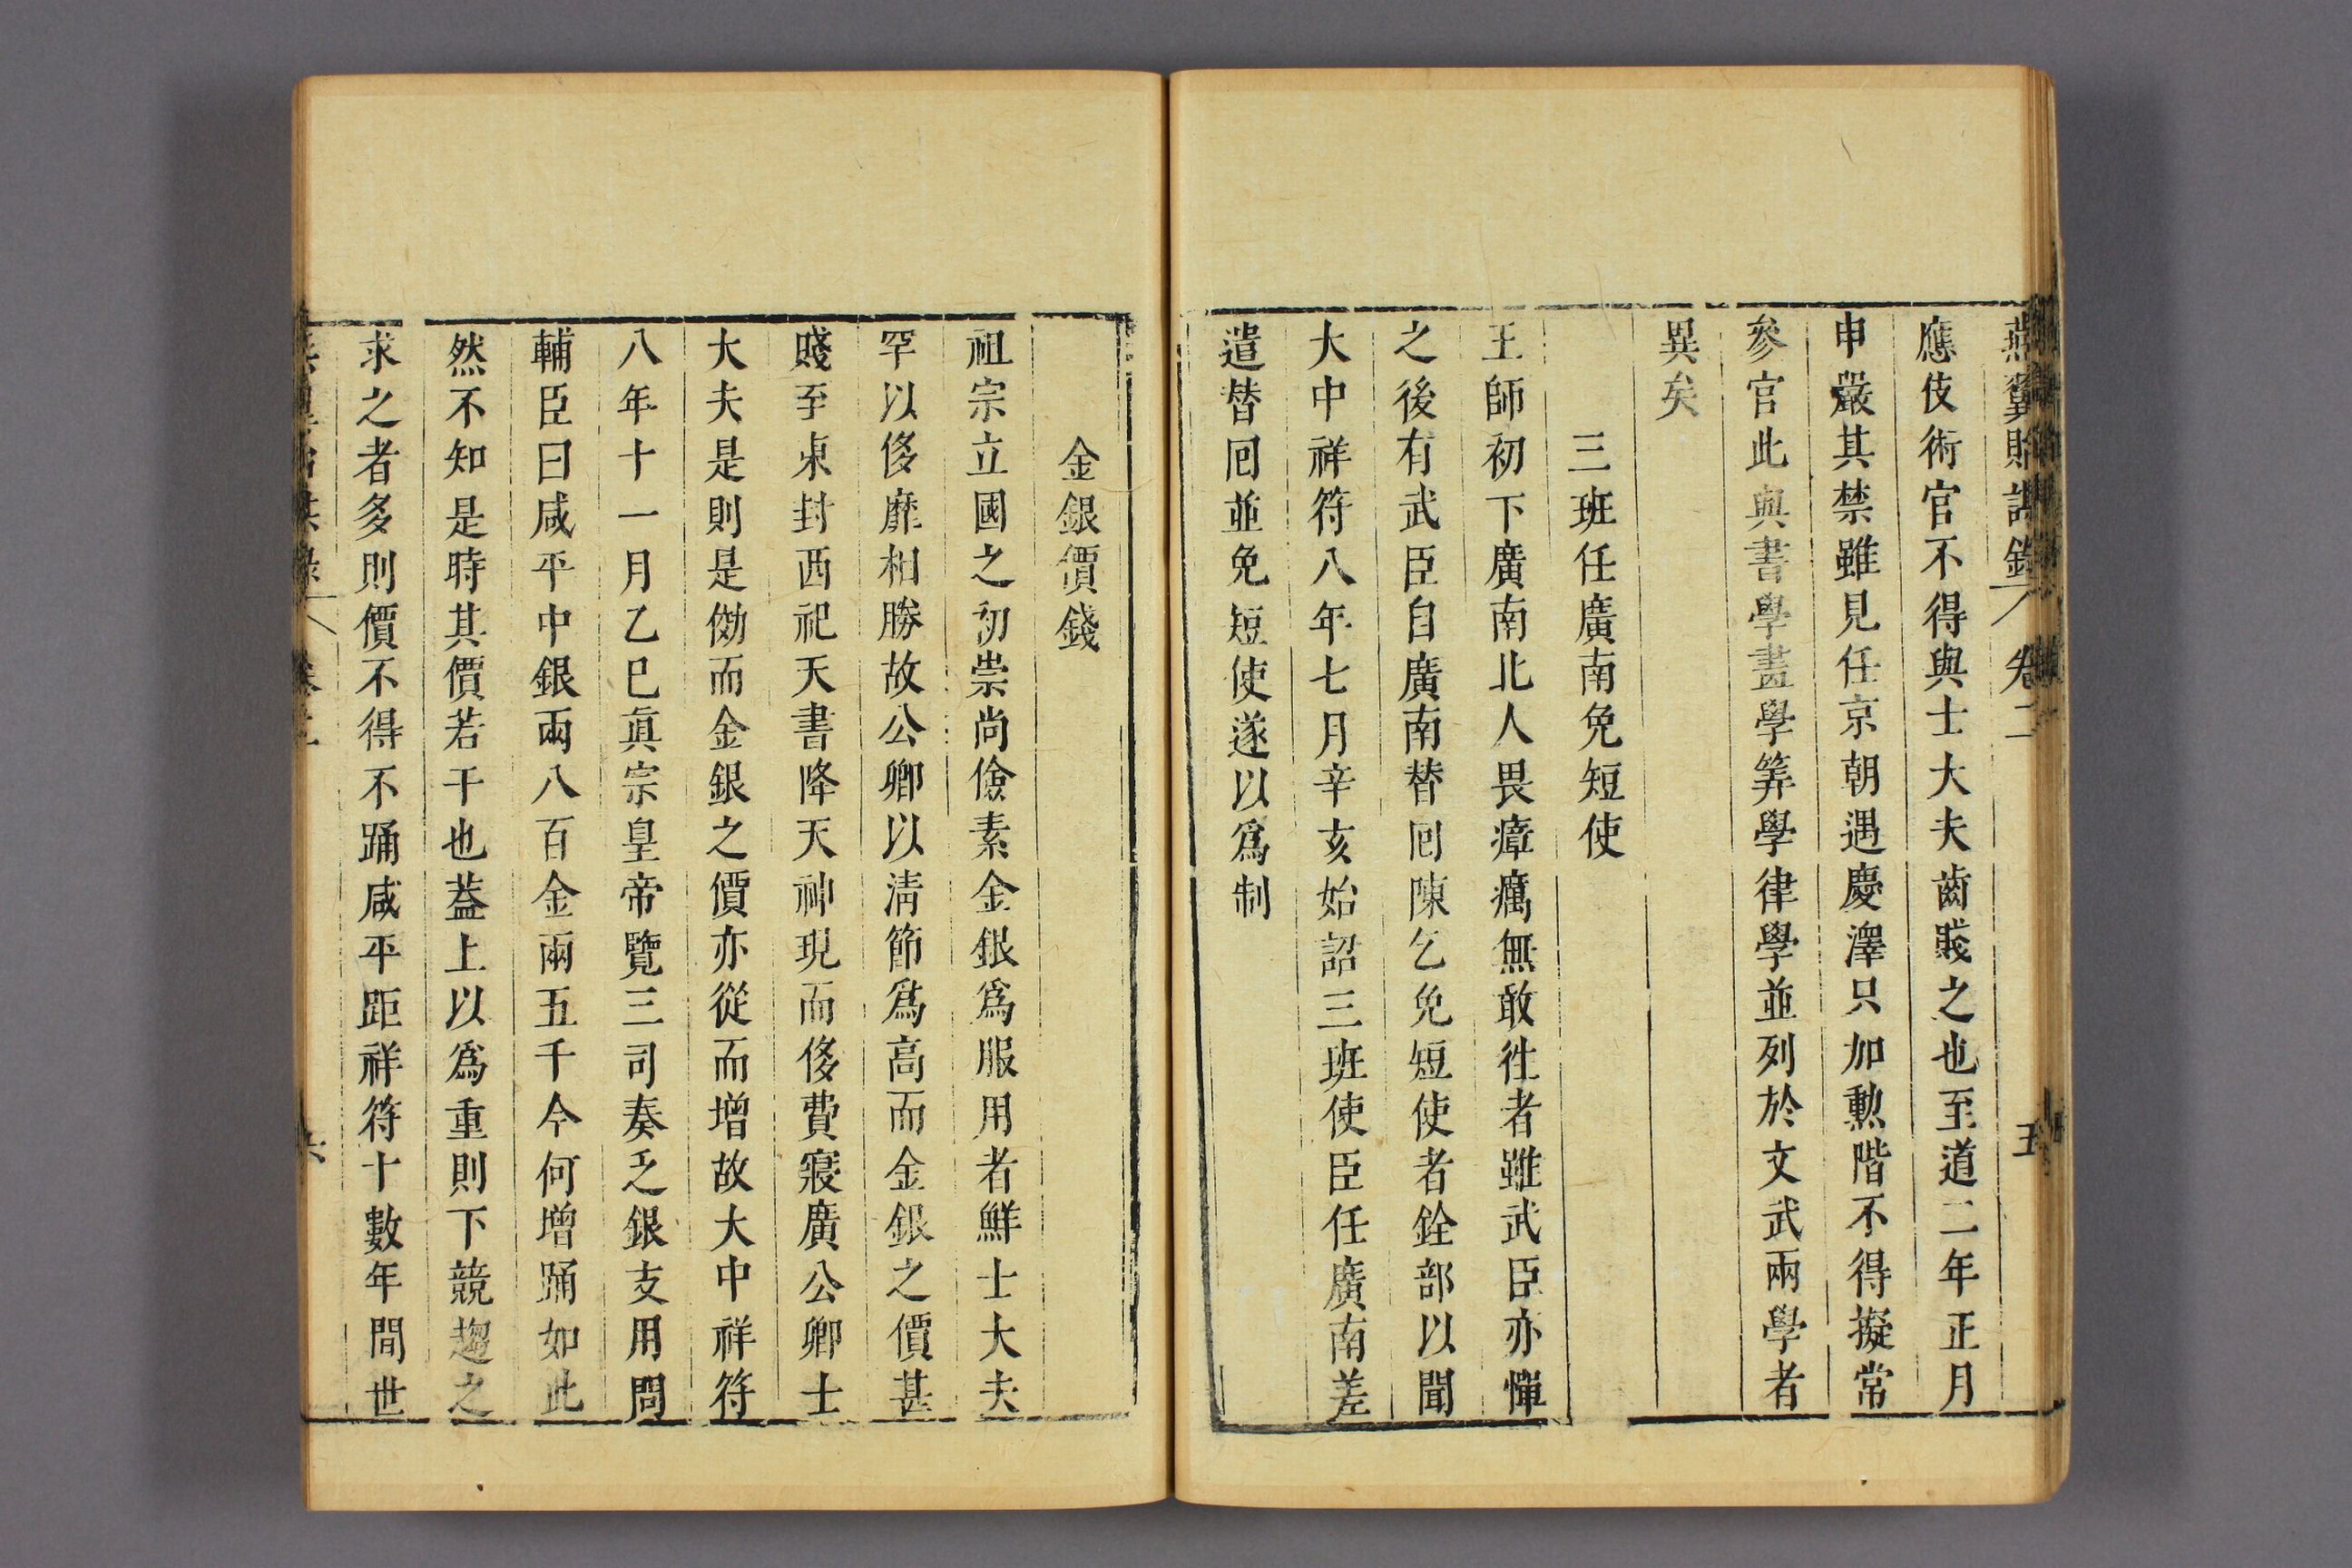 燕翼貽謀錄 卷二 五
應伎術官不得與士大夫齒賤之也至道二年正月
申嚴其禁雖見任京朝遇慶澤只加勲階不得擬常
參官此與書學畫學筭學律學並列於文武兩學者
異矣
三班任廣南免短使
王師初下廣南北人畏瘴癘無敢徃者雖武臣亦憚
之後有武臣自廣南替囘陳乞免短使者銓部以聞
大中祥符八年七月辛亥始詔三班使臣任廣南差
遣替囘並免短使遂以爲制
金銀價錢
祖宗立國之初崇尚儉素金銀爲服用者鮮士大夫
罕以侈靡相勝故公卿以清節爲高而金銀之價甚
賤至東封西祀天書降天神現而侈費寖廣公卿士
大夫是則是傚而金銀之價亦從而增故大中祥符
八年十一月乙巳眞宗皇帝覽三司奏乏銀支用問
輔臣曰咸平中銀兩八百金兩五千今何增踊如此
然不知是時其價若干也葢上以爲重則下競趨之
求之者多則價不得不踊咸平距祥符十數年間世